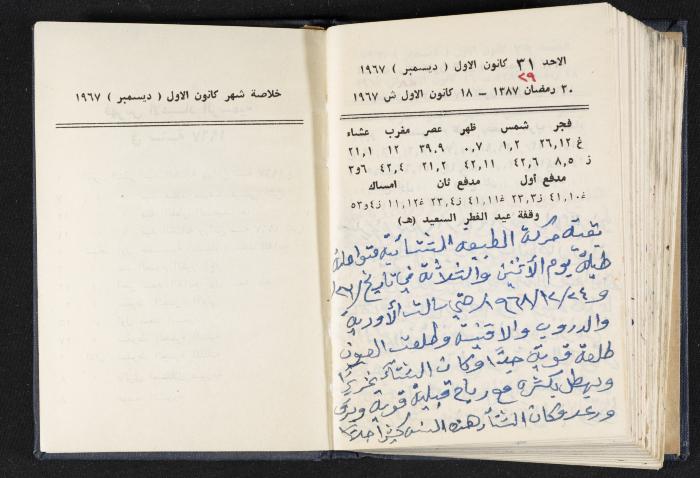 خلاصة شهر كانون الاول ( ديسمبر ) ١٩٦٧
الاحد ٣١ كانون الاول ( ديسمبر ) ١٩٦٧
٢٩
٣٠ رمضان ١٣٨٧ – ١٨ كانون الاول ش ١٩٦٧
فجر شمس ظهر عصر مغرب عشاء
غ ٢٦,١٢ ١,٢ ٠,٧ ٣٩,٩ ١٢ ٢١,١
ز ٨,٥ ٤٢,٦ ٤٢,١١ ٢١,٢ ٤٢,٤ ٦و٣
مدفع أول مدفع ثان امساك
غ ٤١,١٠ ز ٢٣,٣ غ ٤١,١١ ز ٢٣,٤ غ ١١,١٢ ز ٤و٥٣
وقفة عيد الفطر السعيد (هـ)
بقية حركة الطبيعة الشتائية متواصلة
طيلة يوم الأثنين والثلاثة في تاريخ
و ١٩٦٨/١٢/٢٤ حتي سالت الأودية
والدروب والاقنية وطلعت العيون
طلعة قوية جيدا وكان الشتاء غزيرًا
ويهطل بكثرة مع رياح قبلية قوية وبرق
ورعد وكان الشتاء هذه السنه كثيرًا جدًا